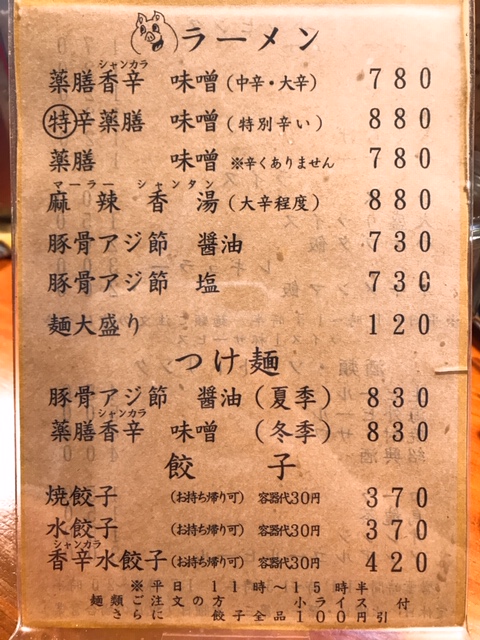 ラーメン
シャンカラ
薬膳香辛 味噌(中辛・大辛) 780
特辛薬膳 味噌(特別辛い) 880
薬膳 味噌 ※辛くありません 780
マーラー シャンタン
麻辣香湯(大辛程度) 880
豚骨アジ節 醤油 730
豚骨アジ節 塩 730
麺大盛り 120
つけ麺
豚骨アジ節 醤油(夏季) 830
シャンカラ
薬膳香辛 味噌(冬季) 830
餃子
焼餃子(お持ち帰り可) 容器代30円 370
水餃子(お持ち帰り可) 容器代30円 370
シャンカラ
香辛水餃子(お持ち帰り可) 容器代30円 420
※平日 11時～15時半
麺類ご注文の方 小ライス 付
さらに 餃子全品100円引